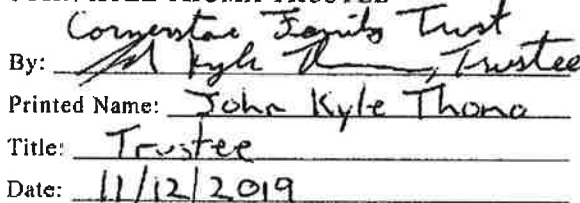 Cornerstone Family Trust
By: Kyle Thoma, Trustee
Printed Name: John Kyle Thoma
Title: Trustee
Date: 11/12/2019